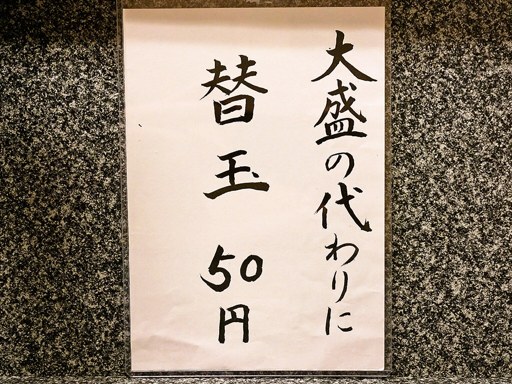 大盛の代わりに
替玉 50円